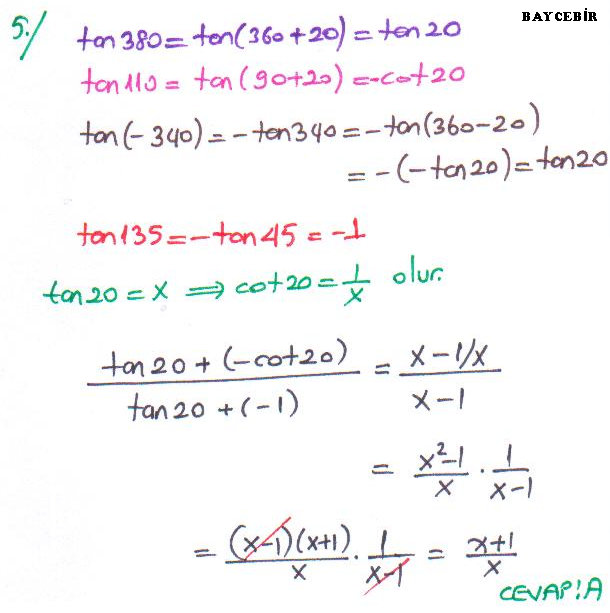 BAYCEBİR
5./ tan380 = tan(360+20) = tan20
tan110 = tan(90+20) = -cot20
tan(-340) = -tan340 = -tan(360-20)
= -(-tan20) = tan20
tan135 = -tan45 = -1
tan20 = x ⟹ cot20 = 1/x olur.
(tan20 + (-cot20)) / (tan20 + (-1)) = (x - 1/x) / (x - 1)
= (x²-1)/x · 1/(x-1)
= (x-1)(x+1)/x · 1/(x-1) = (x+1)/x
CEVAP: A